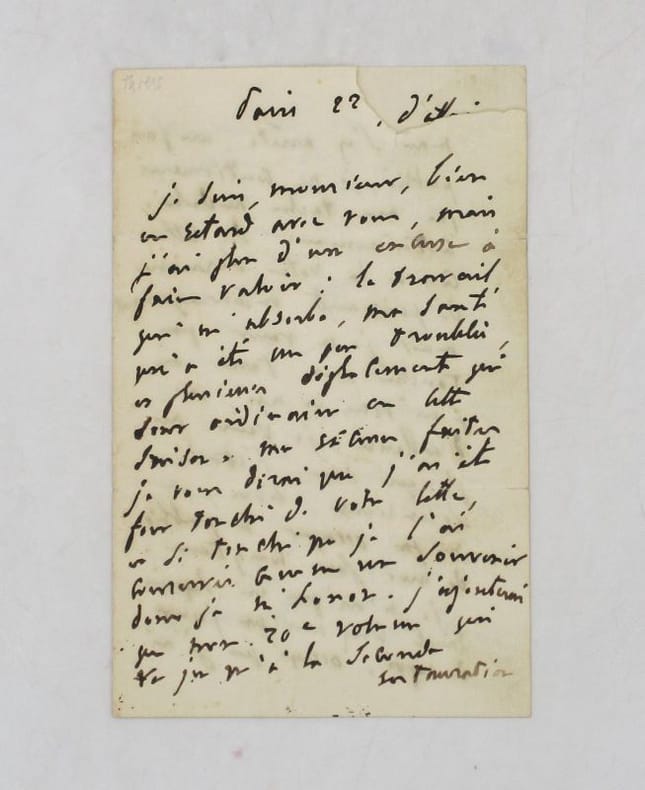 Thiers
Paris 22
je suis, monsieur, bien
en retard avec vous, mais
j'ai plus d'une excuse à
faire valoir : le travail
qui m'absorbe, ma santé
qui a été un peu troublée,
et plusieurs déplacements qui
sont ordinaires en cette
saison. mes excuses faites
je vous dirai que j'ai été
fort touché de votre lettre,
et si touché que je l'ai
conservée comme un souvenir
dont je m'honore. j'ajouterai
que mon 20e volume qui
va jusqu'à la seconde
restauration